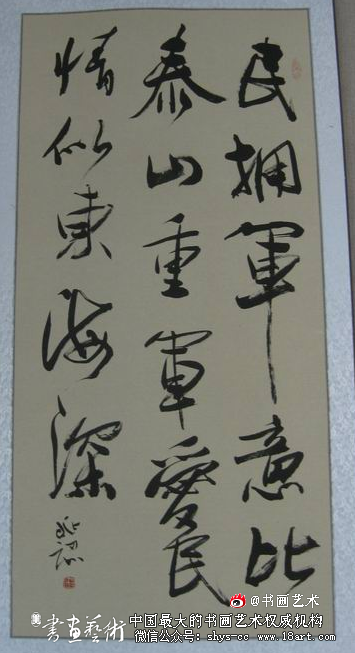 民拥軍意比
泰山重軍愛民
情似東海深
@书画艺术
書画藝術
中国最大的书画艺术权威机构
微信公众号：shys-cc www.18art.com